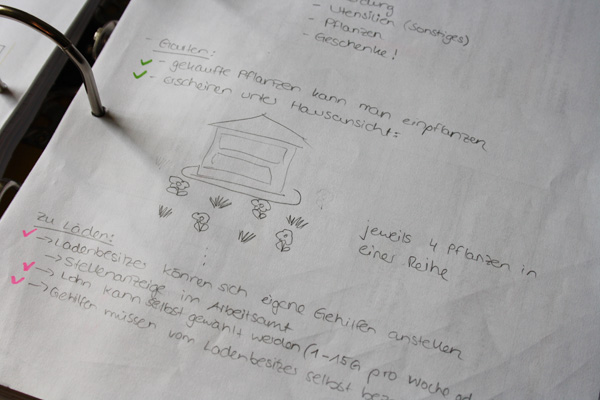 - Utensilien (Sonstiges)
- Pflanzen
- Geschenke!
- Garten:
- gekaufte Pflanzen kann man einpflanzen
- erscheinen unter Hausansicht:
jeweils 4 Pflanzen in
einer Reihe
Zu Läden:
→ Ladenbesitzer können sich eigene Gehilfen anstellen
→ Stellenanzeige im Arbeitsamt
→ Lohn kann selbst gewählt werden (1-15G pro Woche
→ Gehilfen müssen vom Ladenbesitzer selbst